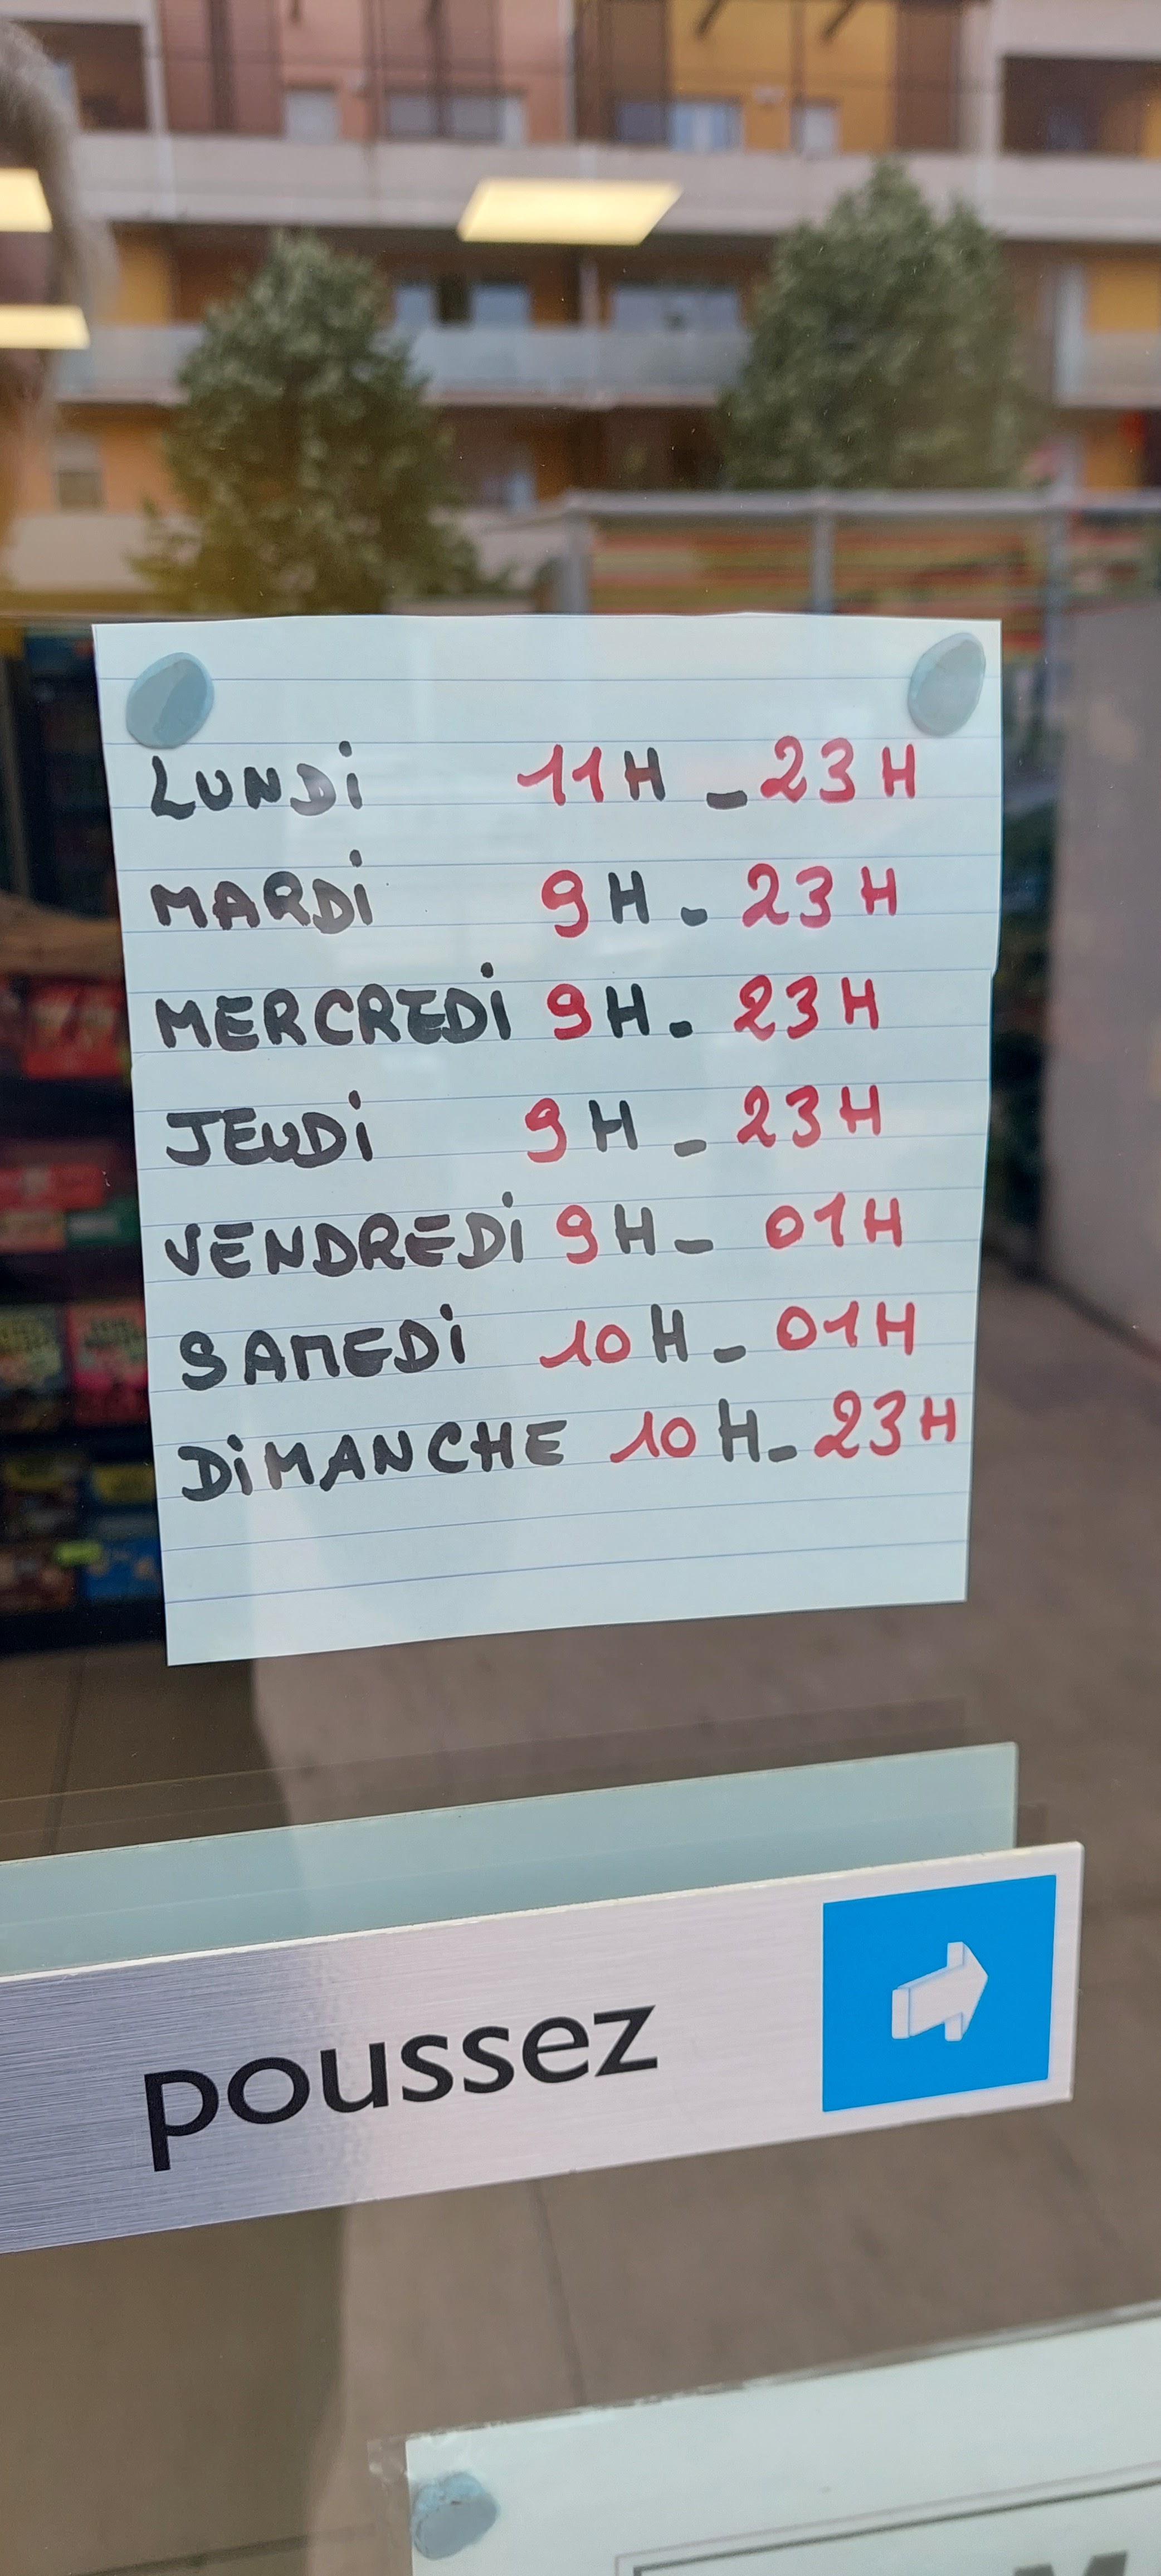 LUNDi 11H - 23H
MARDi 9H - 23H
MERCREDi 9H - 23H
JEUDi 9H - 23H
VENDREDi 9H - 01H
SAMEDi 10H - 01H
DiMANCHE 10H - 23H
poussez